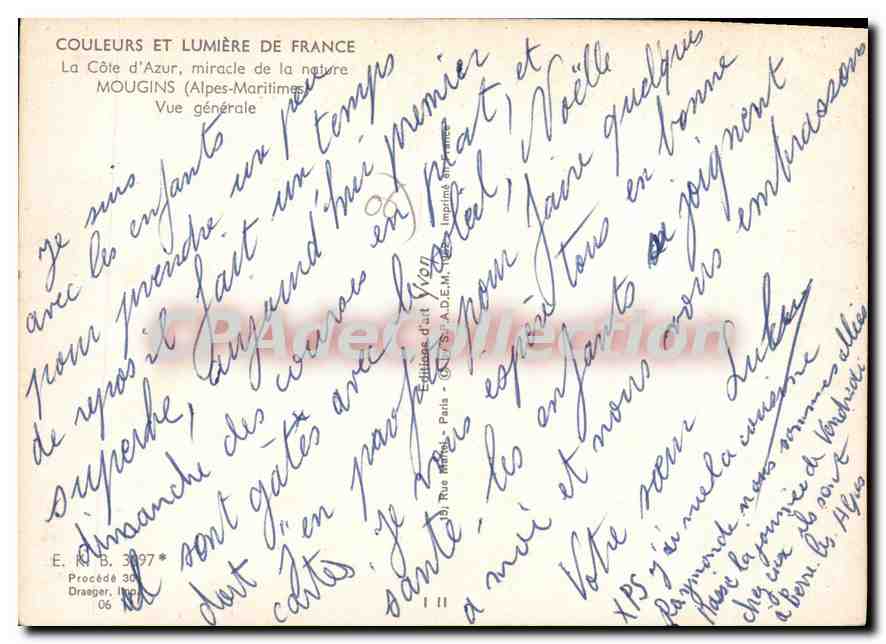 COULEURS ET LUMIÈRE DE FRANCE
La Côte d'Azur, miracle de la nature
MOUGINS (Alpes-Maritimes)
Vue générale
Je suis
avec les enfants
pour prendre un peu
de repos il fait un temps
superbe, aujourd'hui premier
dimanche des courses en plat, et
ils sont gâtés avec le soleil, Noëlle
dort j'en profite pour faire quelques
cartes. Je vous espère tous en bonne
santé, les enfants se joignent
a moi et nous vous embrassons
Votre sœur
XPS j'ai vue la cousine
Raymonde nous sommes allées
Passé la journée de Vendredi
chez eux ils sont
a Berre les Alpes
Editions d'art Yvon
15, Rue Martel - Paris - Imprimé en France
E. K. B. 3097*
Procédé 301
Draeger, Imp.
06
I II
CPAdeCollection